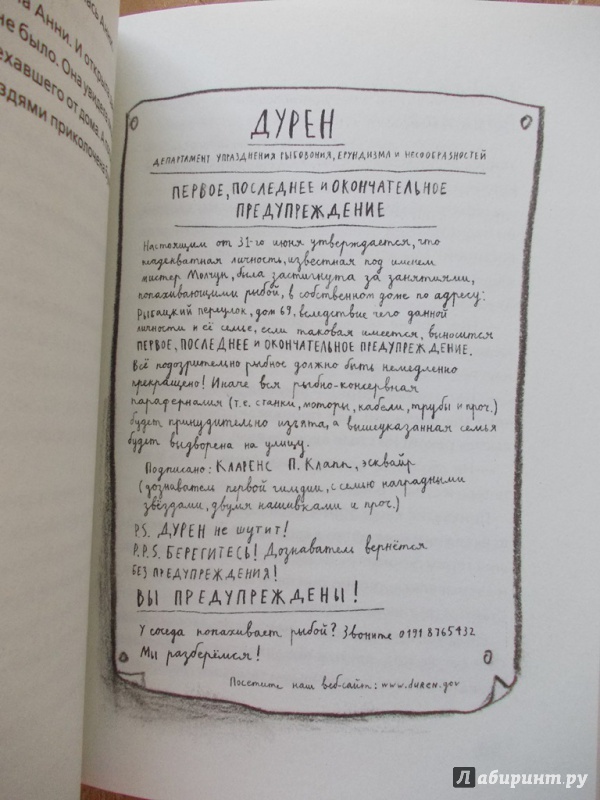 ась Анни
на Анни. И открыла
не было. Она увидела
ехавшего от дома. А
здями приколочена
ДУРЕН
ДЕПАРТАМЕНТ УПРАЗДНЕНИЯ РЫБОВОНИЯ, ЕРУНДИЗМА И НЕСООБРАЗНОСТЕЙ
ПЕРВОЕ, ПОСЛЕДНЕЕ И ОКОНЧАТЕЛЬНОЕ
ПРЕДУПРЕЖДЕНИЕ
Настоящим от 31-го июня утверждается, что
неадекватная личность, известная под именем
мистер Молчун, была застигнута за занятиями,
попахивающими рыбой, в собственном доме по адресу:
Рыбацкий переулок, дом 69, вследствие чего данной
личности и её семье, если таковая имеется, выносится
ПЕРВОЕ, ПОСЛЕДНЕЕ И ОКОНЧАТЕЛЬНОЕ ПРЕДУПРЕЖДЕНИЕ.
Всё подозрительно рыбное должно быть немедленно
прекращено! Иначе вся рыбно-консервная
параферналия (т.е. станки, моторы, кабели, трубы и проч.)
будет принудительно изъята, а вышеуказанная семья
будет выдворена на улицу.
Подписано: КЛАРЕНС П. КЛАПП, эсквайр
(дознаватель первой гильдии, с семью наградными
звёздами, двумя нашивками и проч.)
P.S. ДУРЕН не шутит!
P.P.S. БЕРЕГИТЕСЬ! Дознаватель вернётся
БЕЗ ПРЕДУПРЕЖДЕНИЯ!
ВЫ ПРЕДУПРЕЖДЕНЫ!
У соседа попахивает рыбой? Звоните 0191 8765432
Мы разберёмся!
Посетите наш веб-сайт: www.duren.gov
Лабиринт.ру